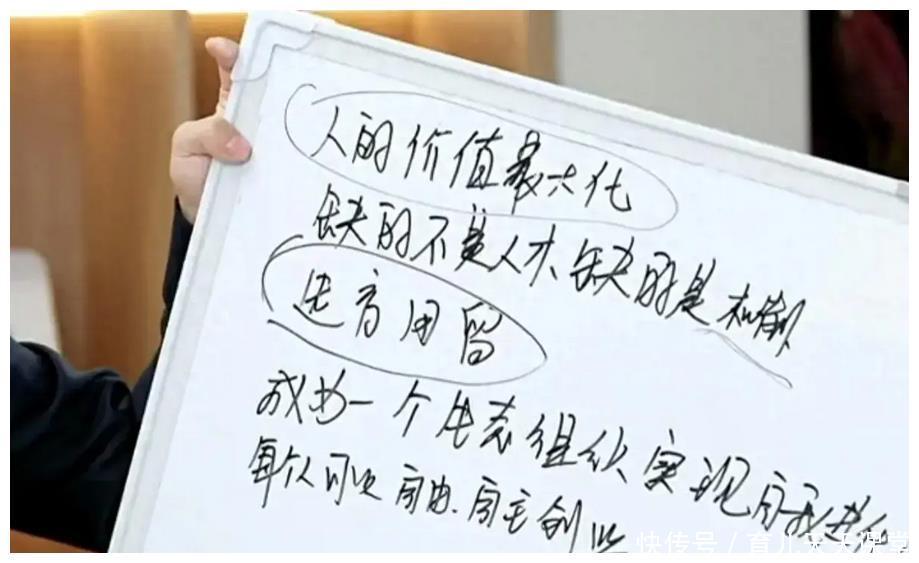 人的价值最大化
缺的不是人才、缺的是机制
选育用留
成为一个生态组织实现自我进化
每个人可以自由、自主创业
快传号 / 育儿天天课堂